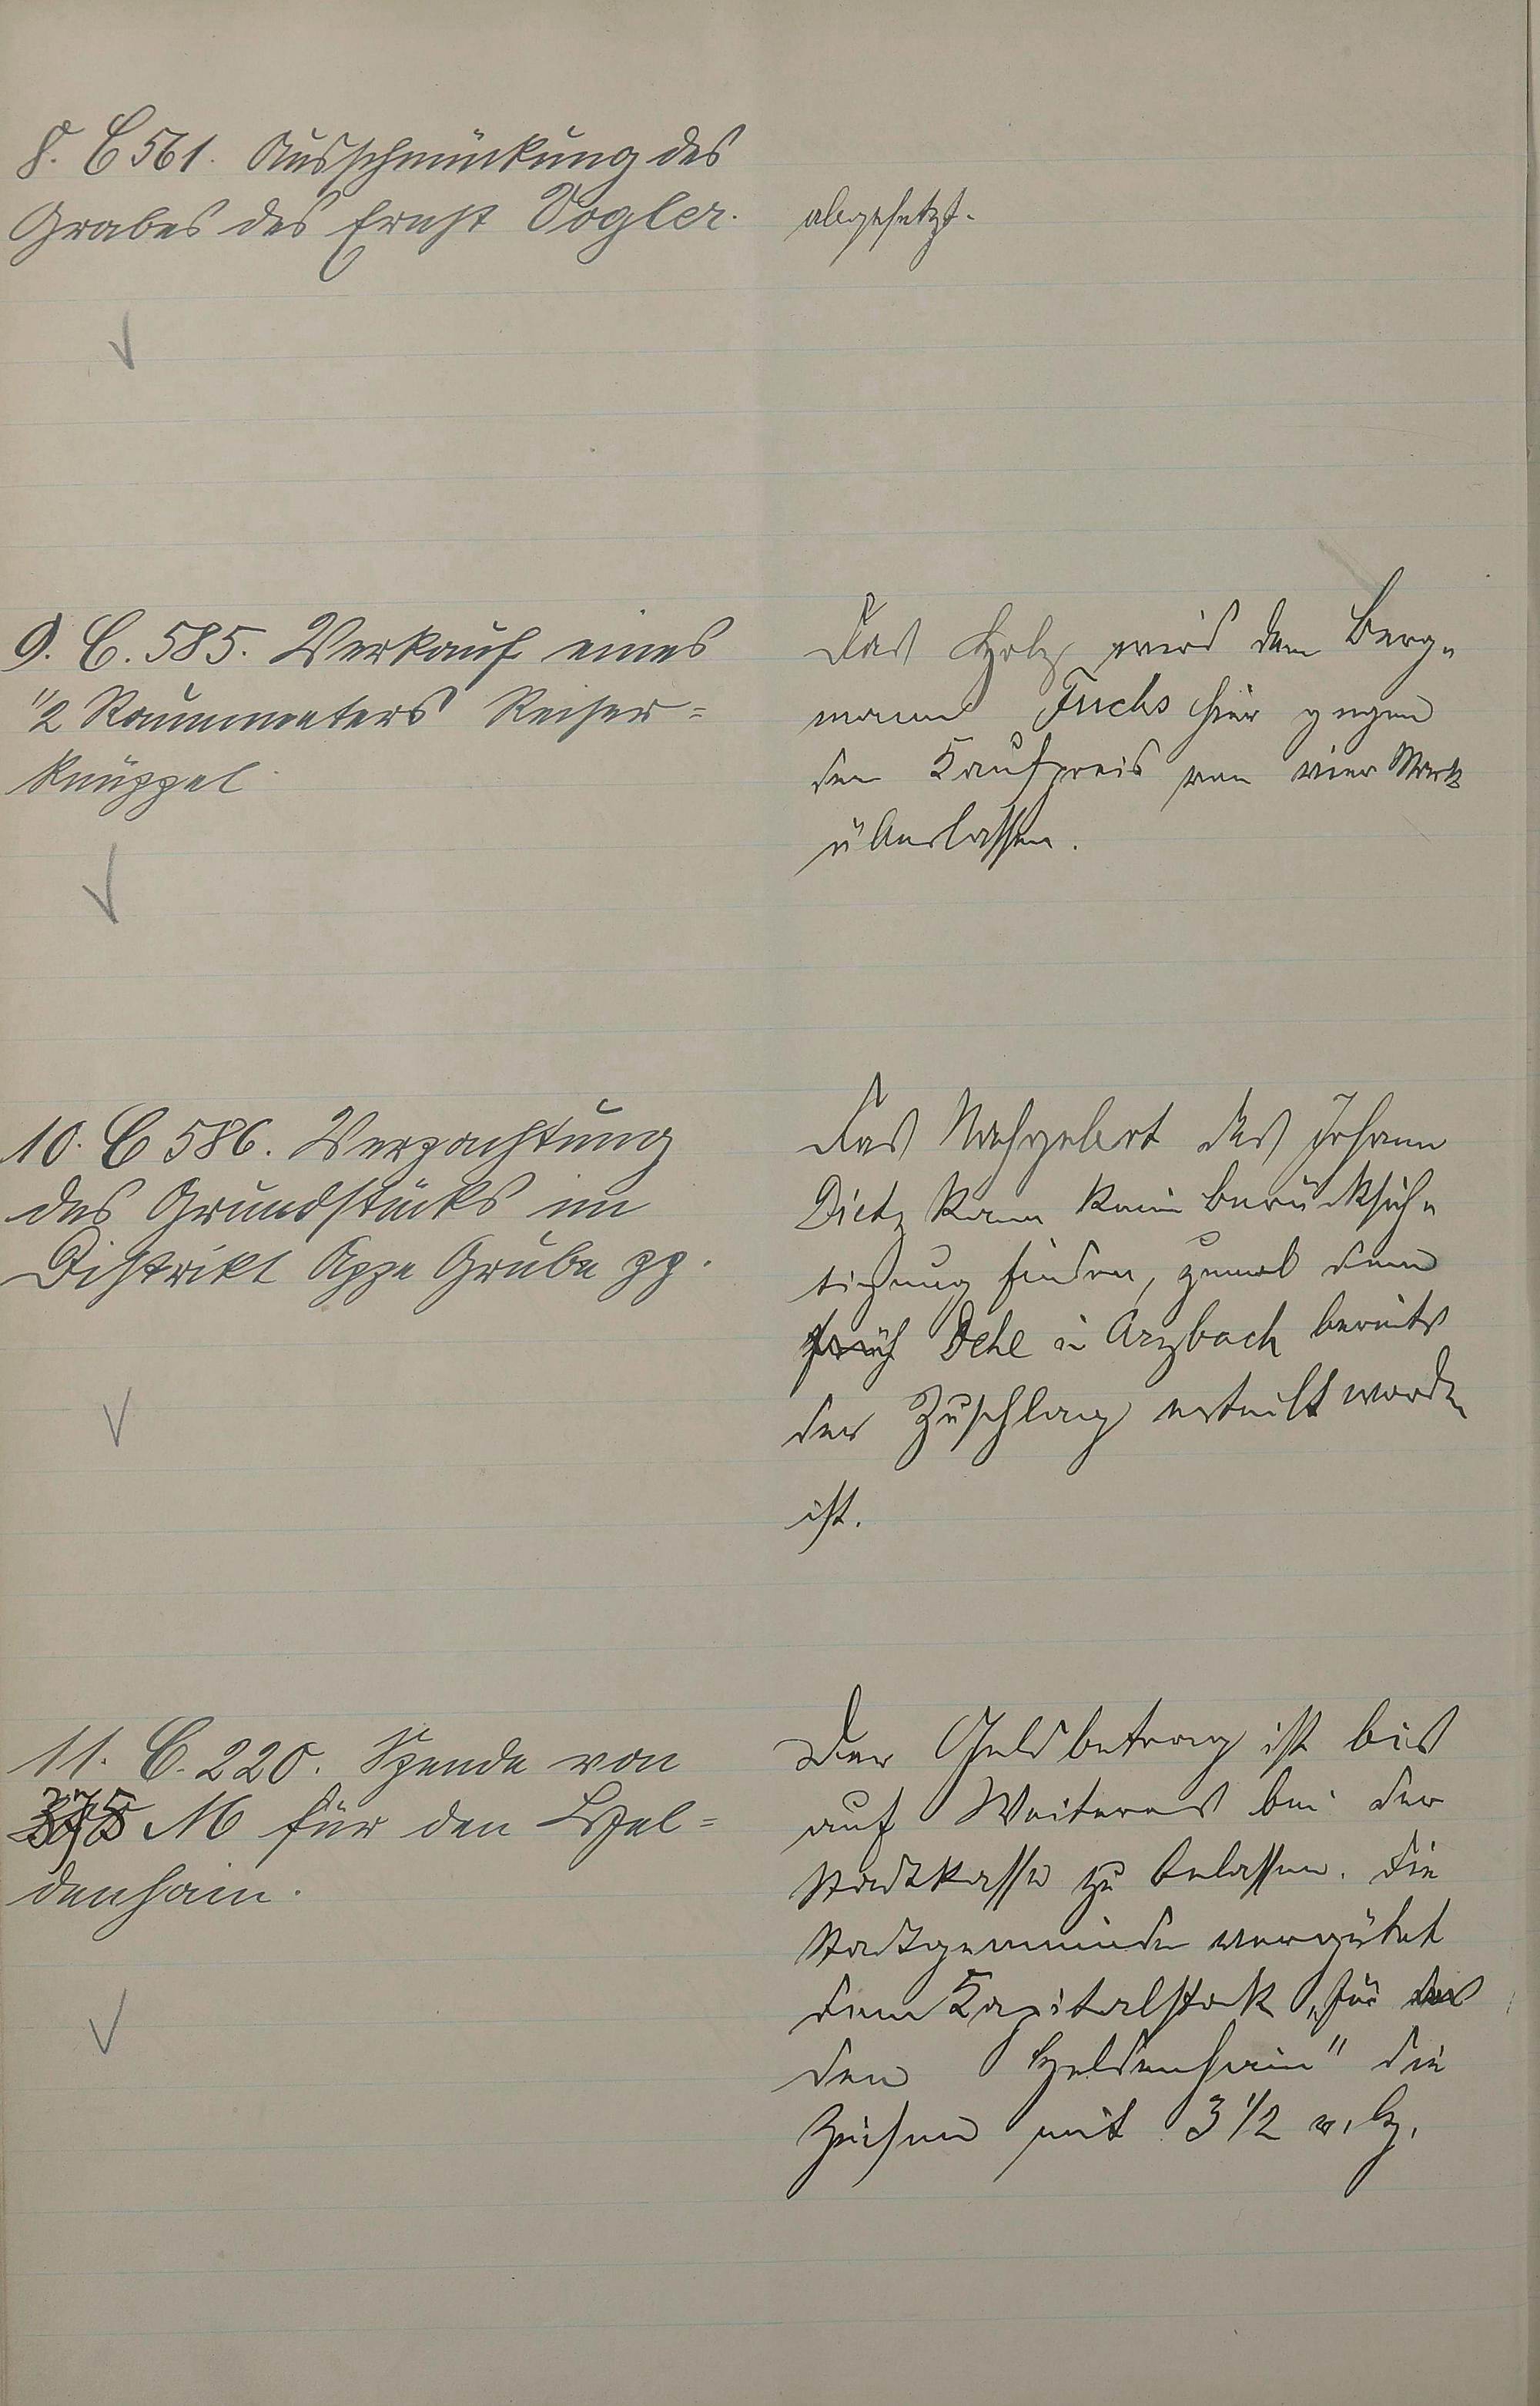 8. C 561. Ausschmückung des
Grabes des Ernst Vogler.
abgesetzt.
9. C. 585. Verkauf eines
1/2 Raummeters Reiser=
knüppel
Das Holz wird dem Berg-
mann Fuchs hier gegen
den Kaufpreis von vier Mark
überlassen.
10. C 586. Verpachtung
des Grundstücks im
Distrikt Appe Grube pp.
Das Nachgebot des Johann
Dietz kann keine Berücksich-
tigung finden, zumal dem
Dehl in Arzbach bereits
der Zuschlag erteilt worden
ist.
11. C. 220. Spende von
375 M für den Hel=
denhain.
Der Geldbetrag ist bis
auf Weiteres bei der
Stadtkasse zu belassen. Die
Stadtgemeinde vergütet
dem Kapitalstock „für das
den Heldenhain" die
Zinsen mit 3 1/2 v. H.